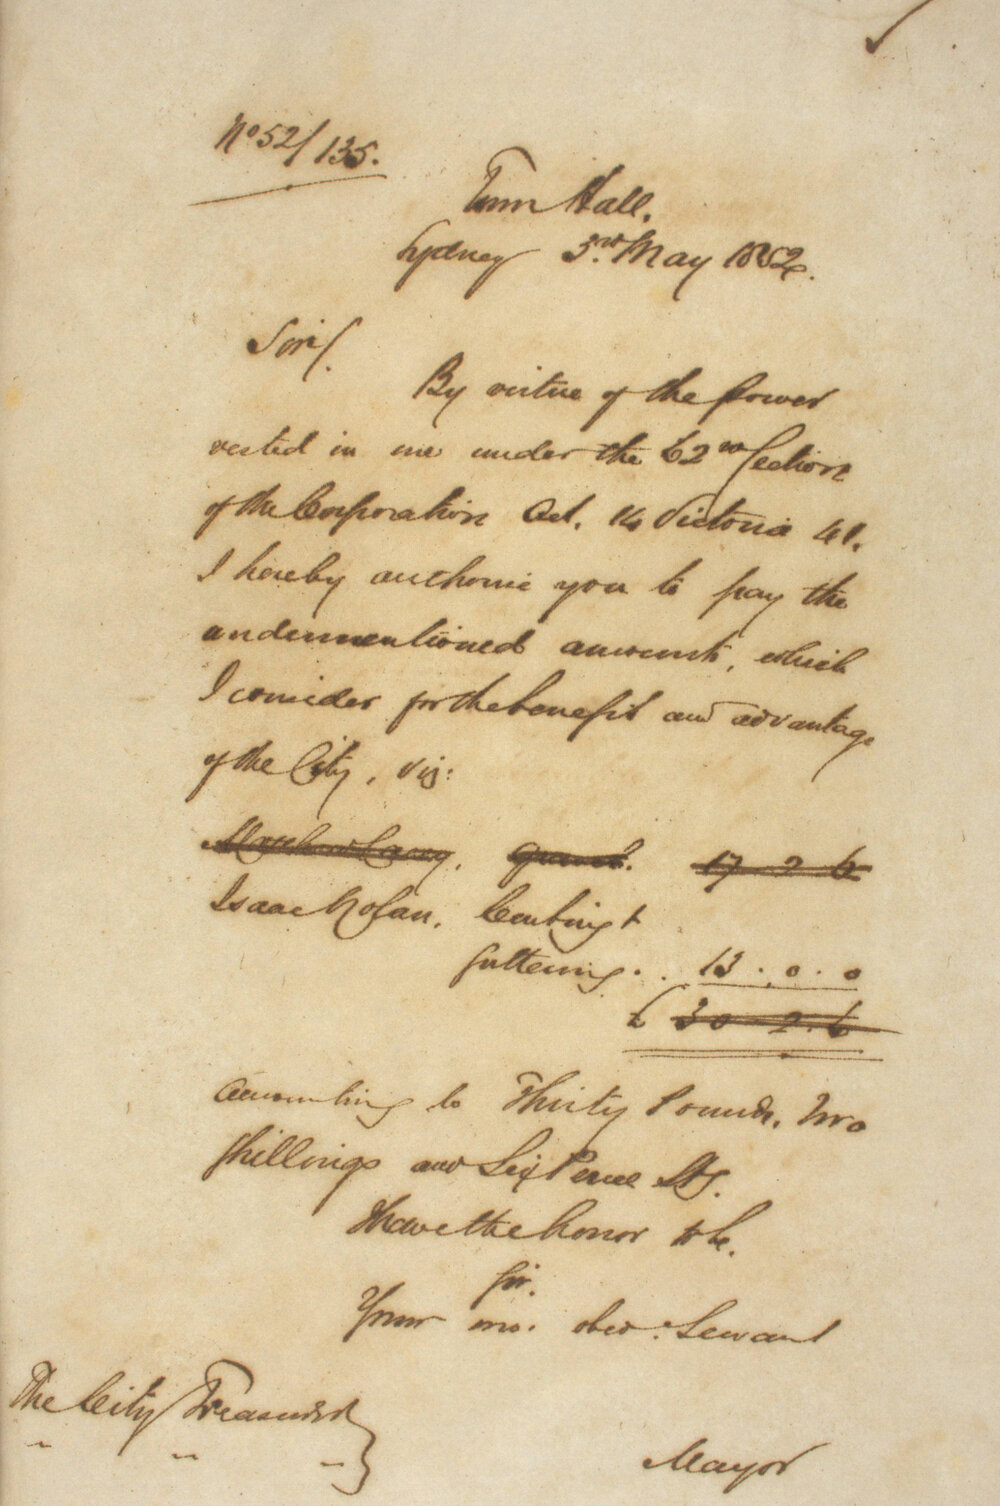 No 52/135.
Town Hall.
Sydney 3rd May 1852.
Sir/.
By virtue of the power
vested in me under the 62nd Section
of the Corporation Act. 14 Victoria 41.
I hereby authorise you to pay the
undermentioned amounts, which
I consider for the benefit and advantage
of the City, viz:
17 2 6
Isaac Kerbing &
guttering . . 13 . 0 . 0
£ 30 . 2 . 6
Amounting to Thirty Pounds, Two
Shillings and Six Pence Stg.
I have the honor to be.
Sir.
Your mo. obed. Servant
The City Treasurer
" " "
Mayor